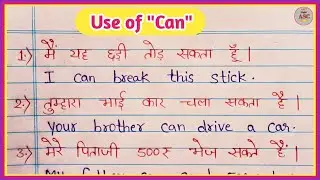 Use of "Can"
1.) मैं यह छड़ी तोड़ सकता हूँ।
I can break this stick.
2.) तुम्हारा भाई कार चला सकता है।
your brother can drive a car.
3.) मेरे पिताजी 500₹ भेज सकते हैं।